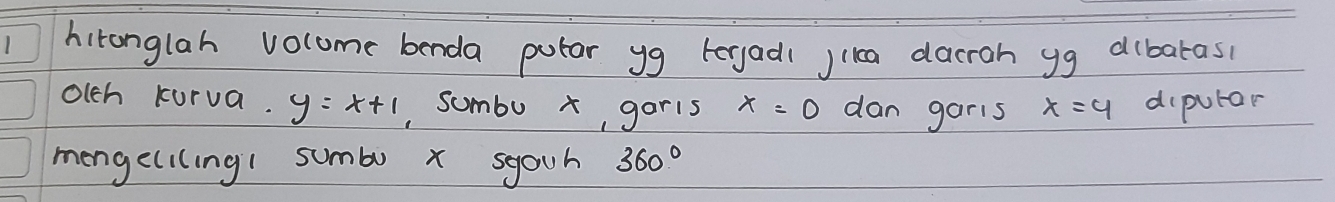 1 hitunglah volume benda putar yg terjadi jika daerah yg dibatasi
oleh kurva. y = x+1, sumbu x, garis x = 0 dan garis x = 4 diputar
mengelilingi sumbu x sejauh 360°